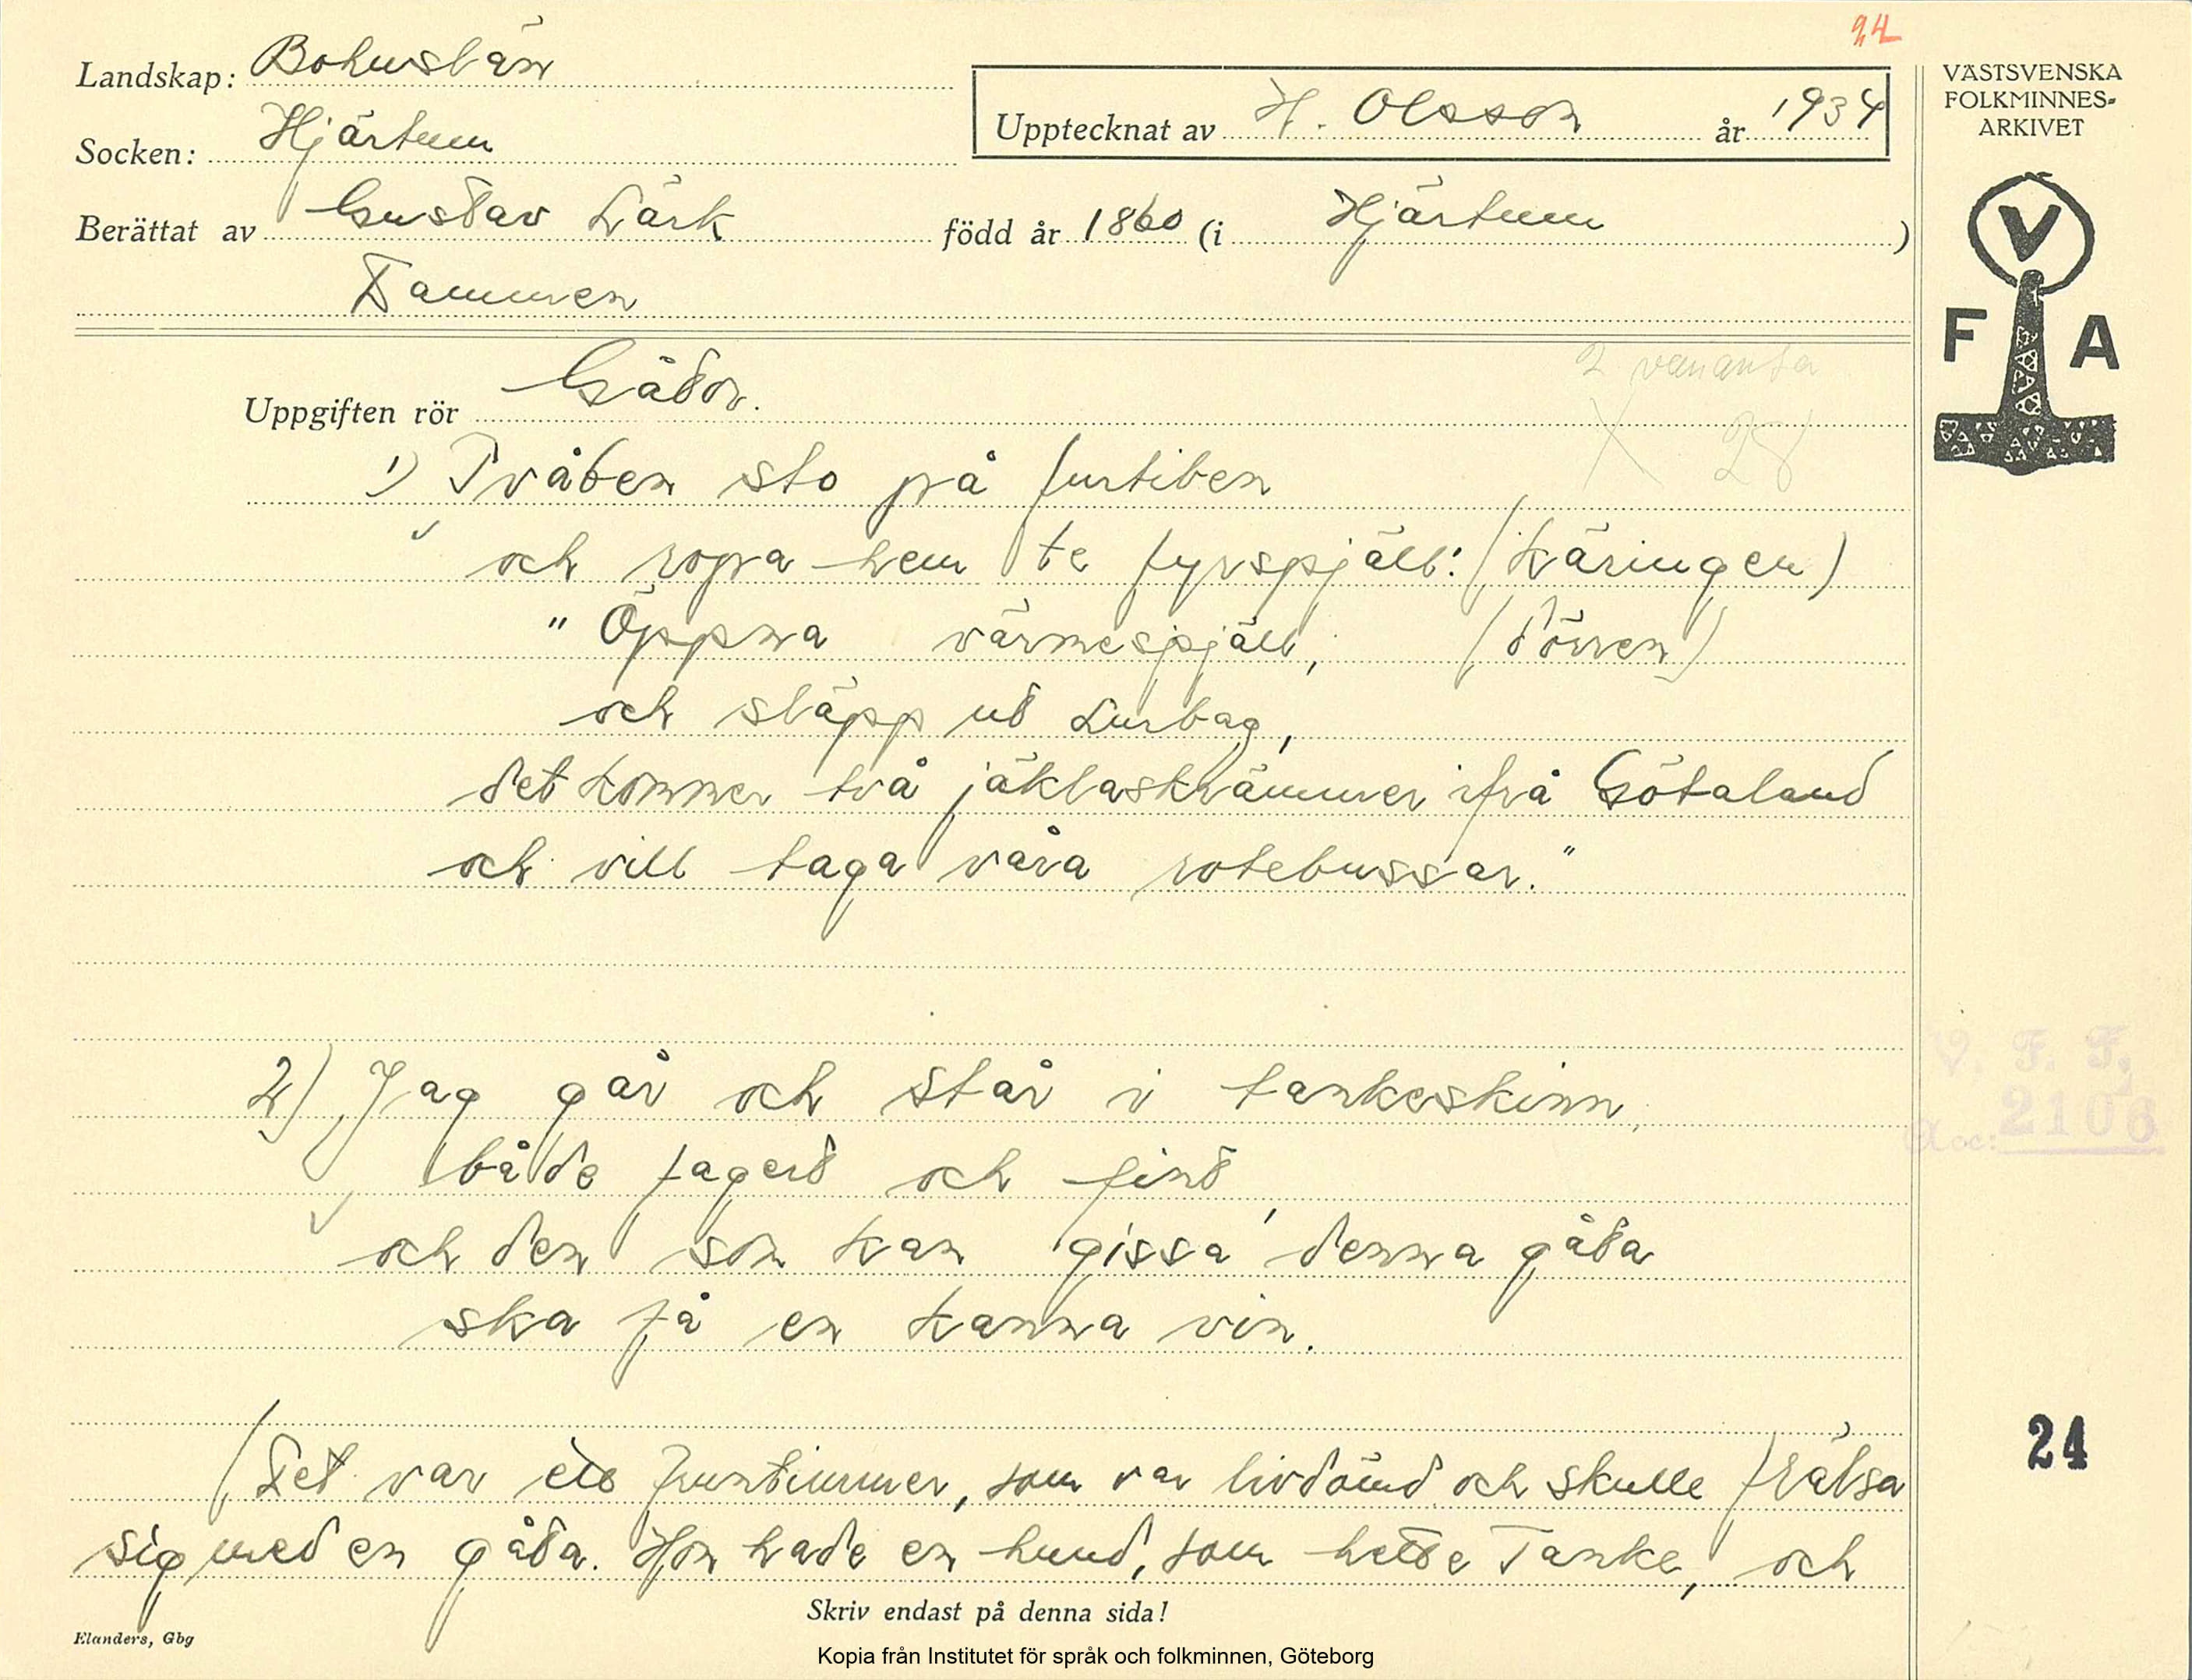 24
Landskap: Bohuslän
Socken: Hjärtum
Upptecknat av H. Olsson år 1934
Berättat av Gustav Lärk född år 1860 (i Hjärtum)
Dammen
VÄSTSVENSKA
FOLKMINNES-
ARKIVET
V
F A
Uppgiften rör Gåtor.
2
28
1) Tvåben sto på furtiben
och ropa hem te fyrspjäll: (Käringen)
"Öppna värmespjäll, (dörren)
och släpp ut Lurbag,
det kommer två jäklaskrämmer ifrå Götaland
och vill taga våra rotebussar."
2) Jag går och står i tankeskinn,
både fagert och fint,
och den som kan gissa denna gåta
ska få en kanna vin.
V. F. F.
Acc: 2106
24
(Det var ett fruntimmer, som var livdömd och skulle frälsa
sig med en gåta. Hon hade en hund, som hette Tanke, och
Skriv endast på denna sida!
Elanders, Gbg
Kopia från Institutet för språk och folkminnen, Göteborg